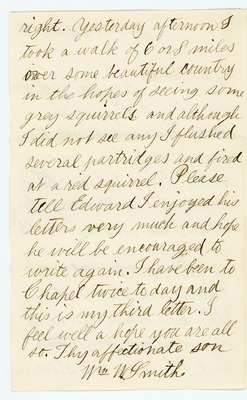 right. Yesterday afternoon I
took a walk of 6 or 8 miles
over some beautiful country
in the hopes of seeing some
grey squirrels and although
I did not see any I flushed
several partridges and fired
at a red squirrel. Please
tell Edward I enjoyed his
letters very much and hope
he will be encouraged to
write again. I have been to
Chapel twice to day and
this is my third letter. I
feel well a hope you are all
so. Thy affectionate son
Wm W Smith.